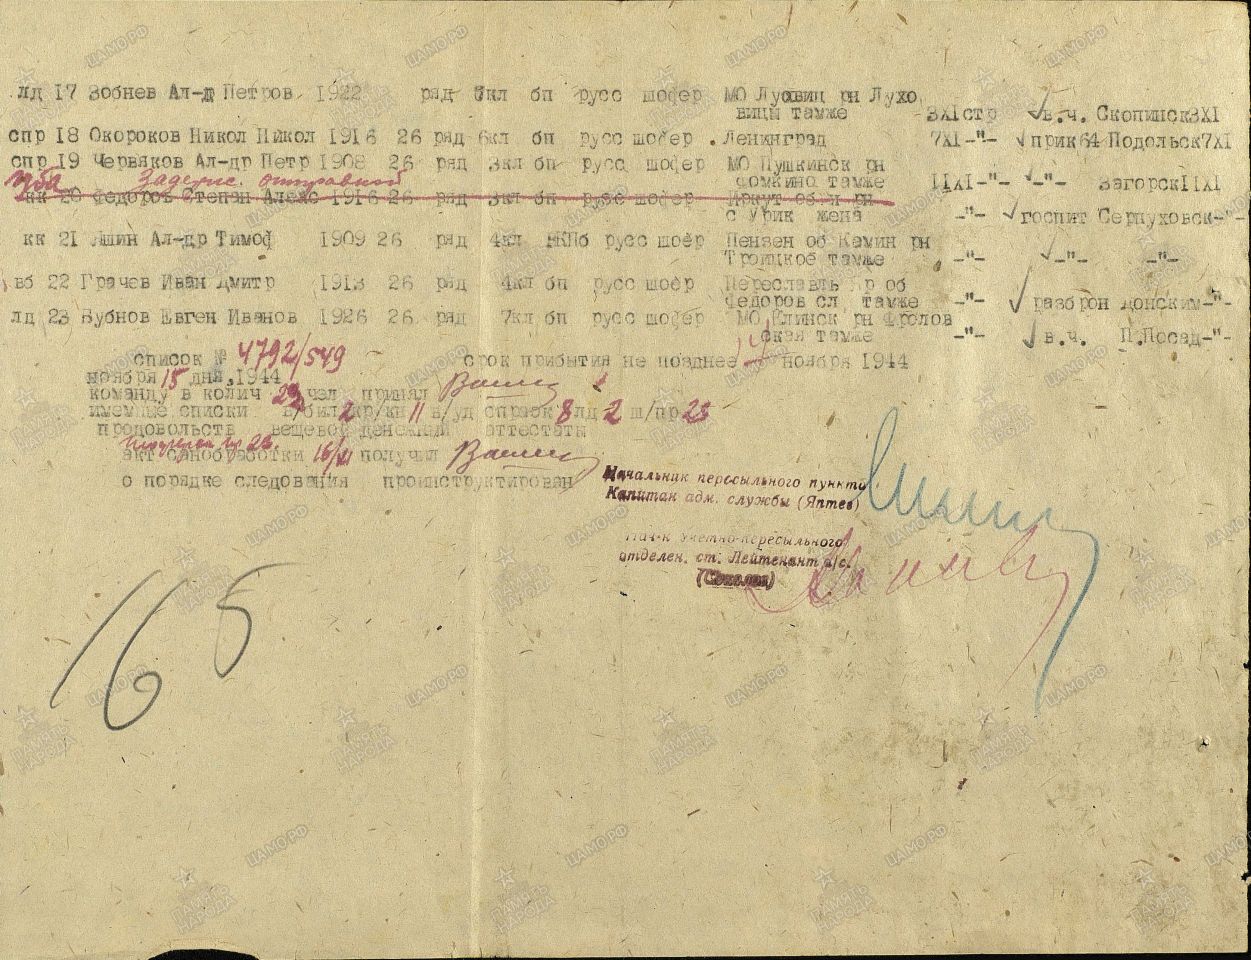 лд 17 Зобнев Ал-др Петров 1922 ряд 7кл бп русс шофер МО Луховиц рн Лухо
вицы тамже 3XIстр в.ч. Скопинск3XI
спр 18 Окороков Никол Никол 1916 26 ряд 6кл бп русс шофер Ленинград 7XI-"- прик64 Подольск7XI
спр 19 Червяков Ал-др Петр 1908 26 ряд 3кл бп русс шофер МО Пушкинск рн
Фомкино тамже 11XI-"- -"- Загорск11XI
Задерж. отправкой
кк 20 Федоров Степан Алекс 1916 26 ряд 3кл бп русс шофер Иркут обл рн
с Урик жена -"- госпит Серпуховск-"-
кк 21 Яшин Ал-др Тимоф 1909 26 ряд 4кл ВКПб русс шофер Пензен об Камин рн
Троицкое тамже -"- -"- -"-
вб 22 Грачев Иван Дмитр 1913 26 ряд 4кл бп русс шофер Переславль Яр об
Федоров сл тамже -"- разброн Донским-"-
лд 23 Бубнов Евген Иванов 1926 26 ряд 7кл бп русс шофер МО Клинск рн Фролов
ская тамже -"- в.ч. П.Посад-"-
список № 4792/549 срок прибытия не позднее ноября 1944
ноября 15 дня 1944
команду в колич чел принял
именные списки в/бил 2 кр/кн 11 в/уд справок 8 лд 2 ш/пр 23
продовольств вещевой денежный аттестаты
акт санобработки 16/XI получил
о порядке следования проинструктирован
Начальник пересыльного пункта
Капитан адм. службы (Яптев)
Нач-к учетно-пересыльного
отделен. ст. Лейтенант а/с.
165
ЦАМО.РФ
ПАМЯТЬ НАРОДА